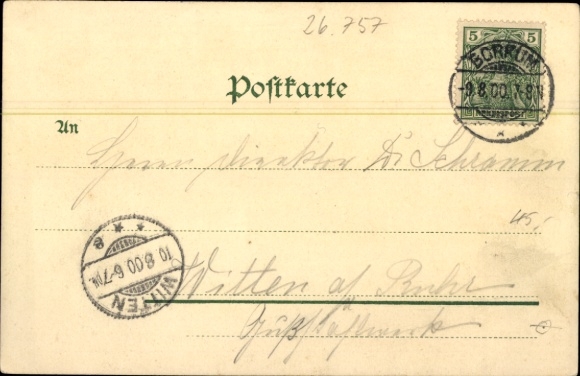 26.757
5 5
BORKUM
-9.8.00.7-8N
Postkarte
An
Herrn Direktor Dr. Schramm
45,-
10 8 00 6-7N.
WITTEN
Witten a/ Ruhr
Gußstahlwerk